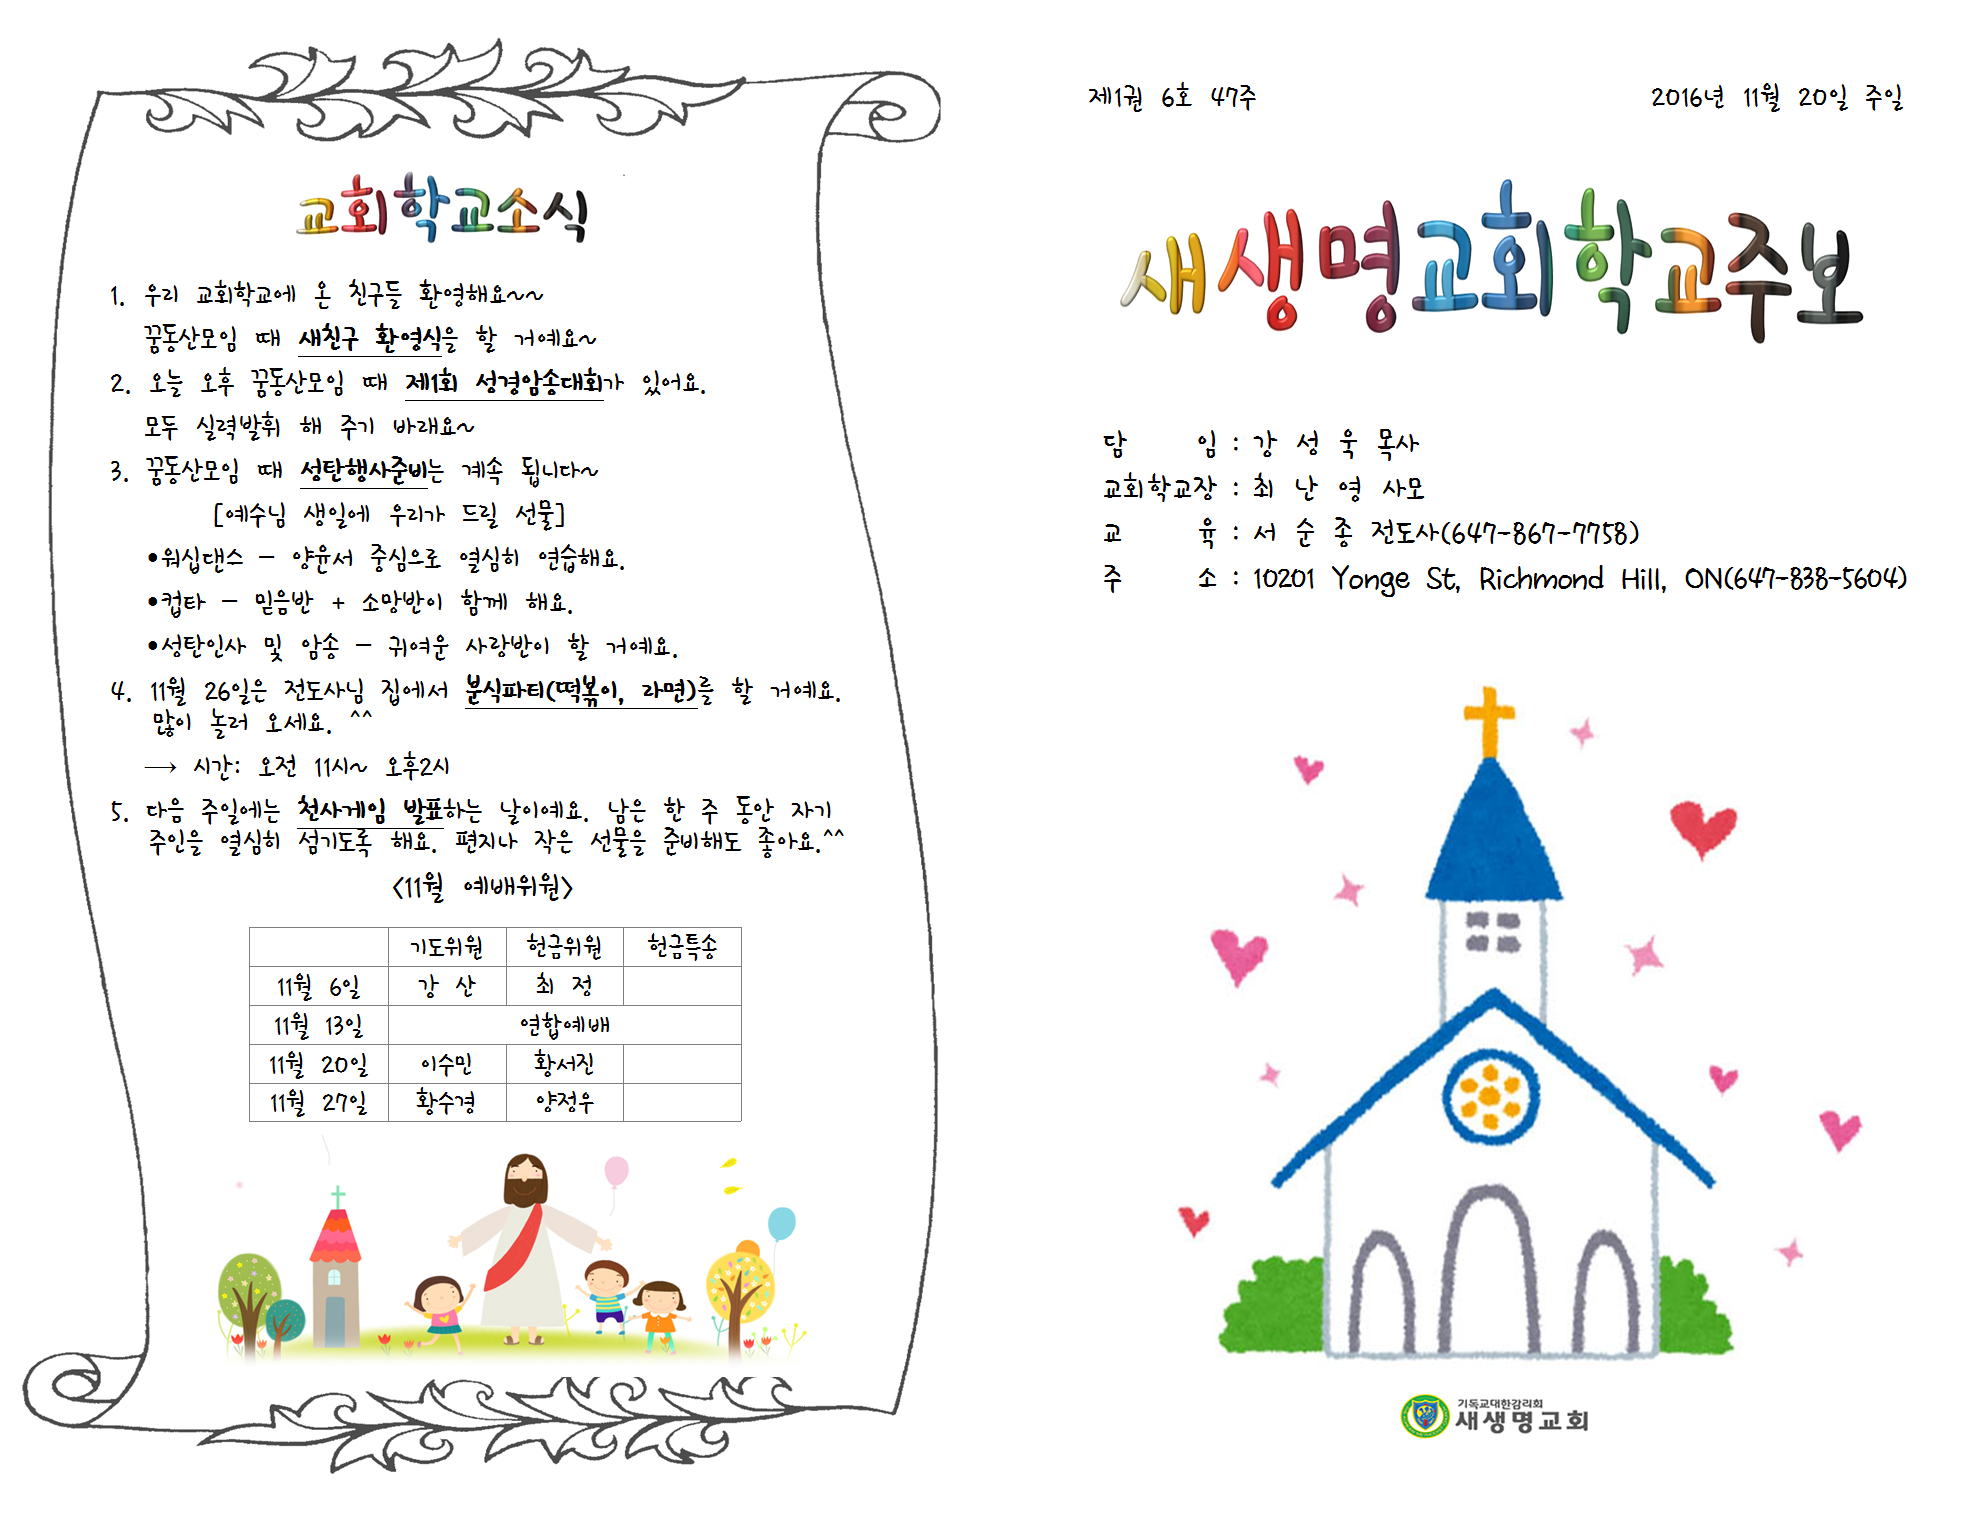 교회학교소식
1. 우리 교회학교에 온 친구들 환영해요~~
꿈동산모임 때 새친구 환영식을 할 거예요~
2. 오늘 오후 꿈동산모임 때 제1회 성경암송대회가 있어요.
모두 실력발휘 해 주기 바래요~
3. 꿈동산모임 때 성탄행사준비는 계속 됩니다~
[예수님 생일에 우리가 드릴 선물]
•워십댄스 – 양윤서 중심으로 열심히 연습해요.
•컵타 – 믿음반 + 소망반이 함께 해요.
•성탄인사 및 암송 – 귀여운 사랑반이 할 거예요.
4. 11월 26일은 전도사님 집에서 분식파티(떡볶이, 라면)를 할 거예요.
많이 놀러 오세요. ^^
→ 시간: 오전 11시~ 오후2시
5. 다음 주일에는 천사게임 발표하는 날이예요. 남은 한 주 동안 자기
주인을 열심히 섬기도록 해요. 편지나 작은 선물을 준비해도 좋아요.^^
<11월 예배위원>
기도위원 헌금위원 헌금특송
11월 6일 강 산 최 정
11월 13일 연합예배
11월 20일 이수민 황서진
11월 27일 황수경 양정우
제1권 6호 47주 2016년 11월 20일 주일
새생명교회학교주보
담 임 : 강 성 욱 목사
교회학교장 : 최 난 영 사모
교 육 : 서 순 종 전도사(647-867-7758)
주 소 : 10201 Yonge St, Richmond Hill, ON(647-838-5604)
기독교대한감리회
새생명교회